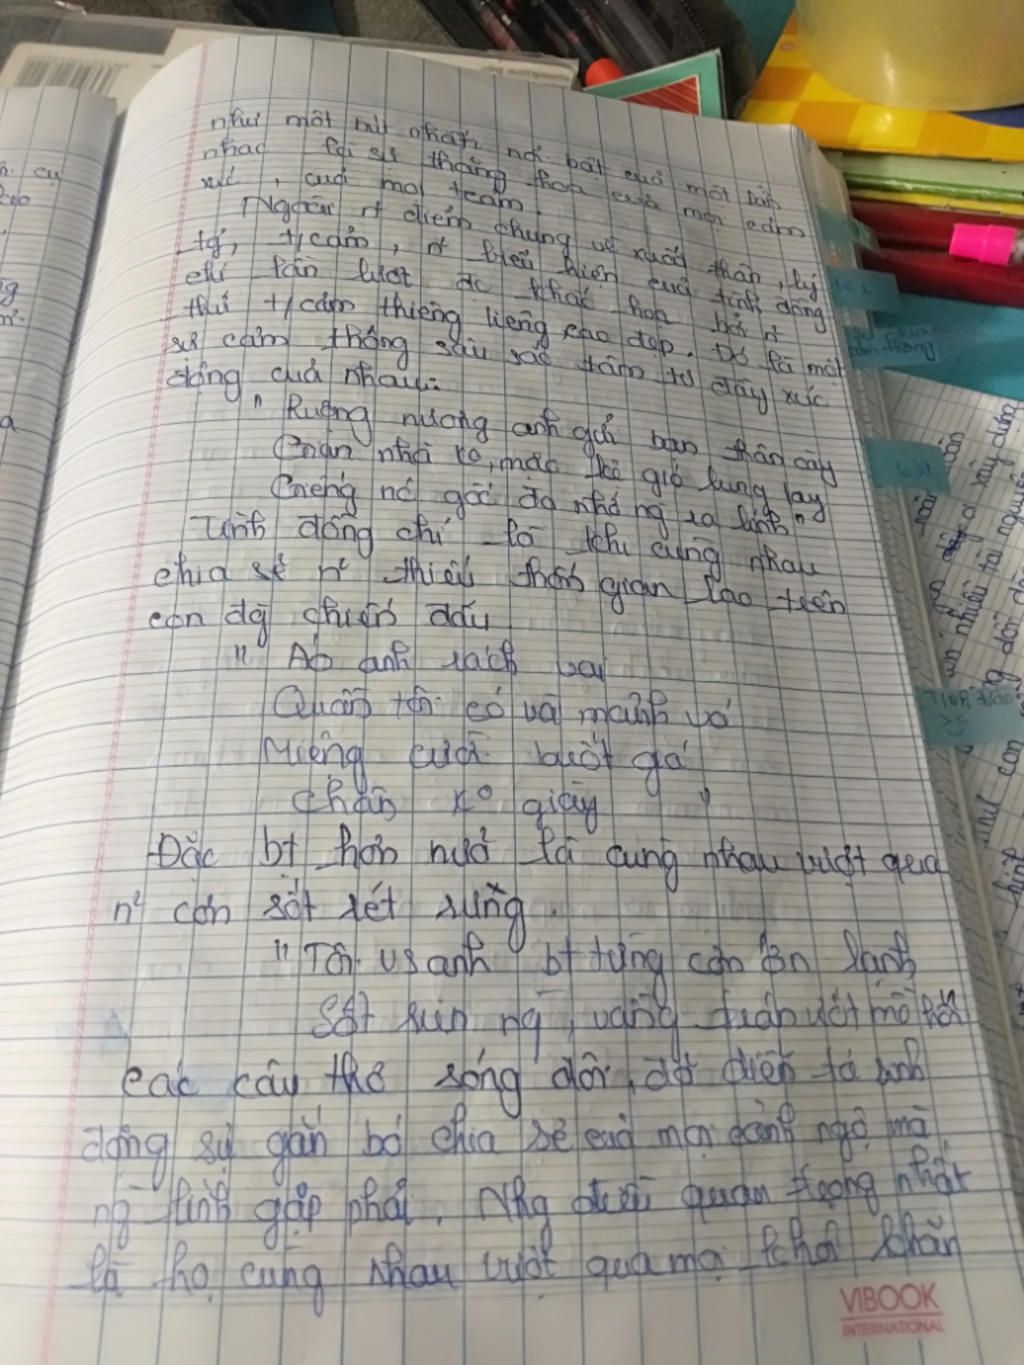 như một nốt nhấn nổi bật của một bản
nhạc là sự thăng hoa của mọi cảm
xúc, của mọi
Ngoài n² điểm chung về xuất thân, lý
tg, t/cảm, n² biểu hiện của tình đồng
chí lần lượt đc khắc họa bởi n²
thứ t/cảm thiêng liêng cao đẹp. Đó là một
sự cảm thông sâu sắc tâm tư đầy xúc
động của nhau:
" Ruộng nương anh gửi bạn thân cày
Gian nhà ko, mặc kệ gió lung lay
Giếng nc gốc đa nhớ ng ra lính"
Tình đồng chí là khi cùng nhau
chia sẻ n² thiếu thốn gian lao trên
con đg chiến đấu
" Áo anh rách vai
Quần tôi có vài mảnh vá
Miệng cười buốt giá
Chân ko giày "
Đặc bt hơn nữa là cùng nhau vượt qua
n² cơn sốt rét rừng.
" Tôi vs anh bt từng cơn ớn lạnh
Sốt run ng, vầng trán ướt mồ hôi"
Các câu thơ sóng đôi, đã diễn tả sinh
động sự gắn bó chia sẻ của mọi cảnh ngộ mà
ng lính gặp phải. Nhg điều quan trọng nhất
là họ cùng nhau vượt qua mọi khó khăn
VIBOOK
INTERNATIONAL